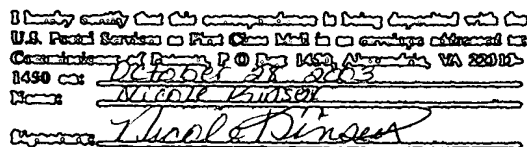 I hereby certify that this correspondence is being deposited with the
U.S. Postal Services as First Class Mail in an envelope addressed to:
Commissioner of Patents, P O Box 1450, Alexandria, VA 22313-
1450 on: October 28 2003
Name: Nicole Kinser
Signature: Nicole Kinser